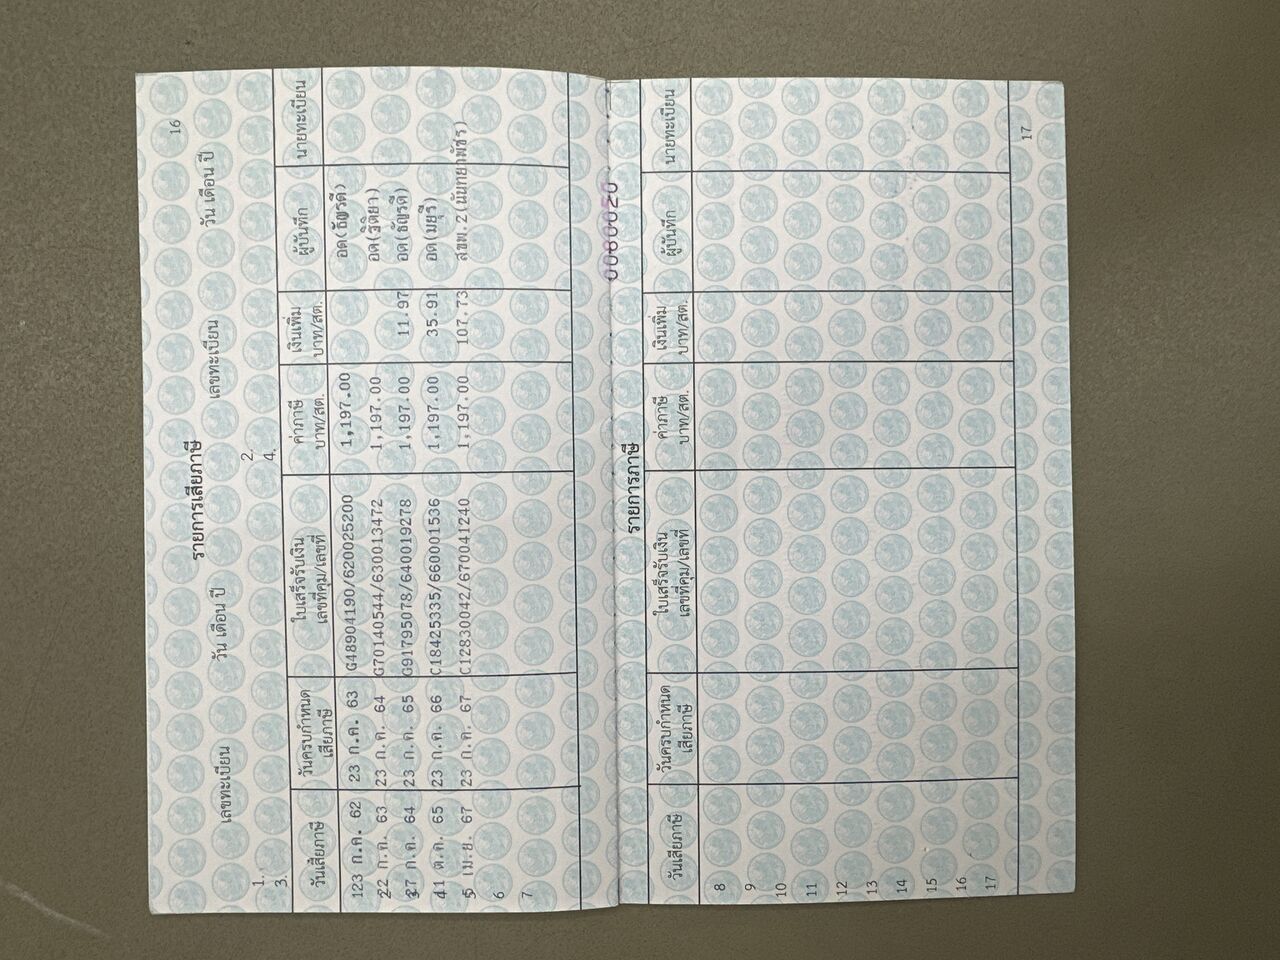 16
รายการเสียภาษี
เลขทะเบียน วัน เดือน ปี เลขทะเบียน วัน เดือน ปี
1. 2.
3. 4.
วันเสียภาษี วันครบกำหนดเสียภาษี ใบเสร็จรับเงิน เลขที่คุม/เลขที่ ค่าภาษี บาท/สต. เงินเพิ่ม บาท/สต. ผู้บันทึก นายทะเบียน
123 ก.ค. 62 23 ก.ค. 63 G48904190/620025200 1,197.00 อด(ธัญรดี)
22 ก.ค. 63 23 ก.ค. 64 G70140544/630013472 1,197.00 อด(รติยา)
37 ก.ค. 64 23 ก.ค. 65 G91795078/640019278 1,197.00 11.97 อด(ธัญรดี)
41 ต.ค. 65 23 ก.ค. 66 C18425335/660001536 1,197.00 35.91 อด(มยุรี)
5 เม.ย. 67 23 ก.ค. 67 C12830042/670041240 1,197.00 107.73 สขพ.2
6
7
0080020
รายการภาษี
วันเสียภาษี วันครบกำหนดเสียภาษี ใบเสร็จรับเงิน เลขที่คุม/เลขที่ ค่าภาษี บาท/สต. เงินเพิ่ม บาท/สต. ผู้บันทึก นายทะเบียน
8
9
10
11
12
13
14
15
16
17
17